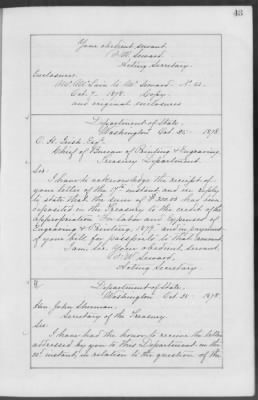 43
Your obedient servant,
F. W. Seward.
Acting Secretary.
Enclosures.
to Mr. Seward. No. 22.
Oct. 7. 1878. Copy.
and original enclosures
Department of State,
Washington Oct. 25. 1878.
O. H. Irish Esq.
Chief of Bureau of Printing & Engraving,
Treasury Department.
Sir
I have to acknowledge the receipt of
your letter of the instant, and in reply
to state that the sum of has been
deposited in the Treasury to the credit of the
appropriation "For labor and expenses of
Engraving & Printing, 1879" and in payment
of your bill for passports to that amount.
I am Sir, Your obedient servant,
F. W. Seward,
Acting Secretary.
Department of State,
Washington Oct. 1878.
Hon. John Sherman,
Secretary of the Treasury.
Sir
I have had the honor to receive the letter
addressed by you to this Department on the
instant, in relation to the question of the